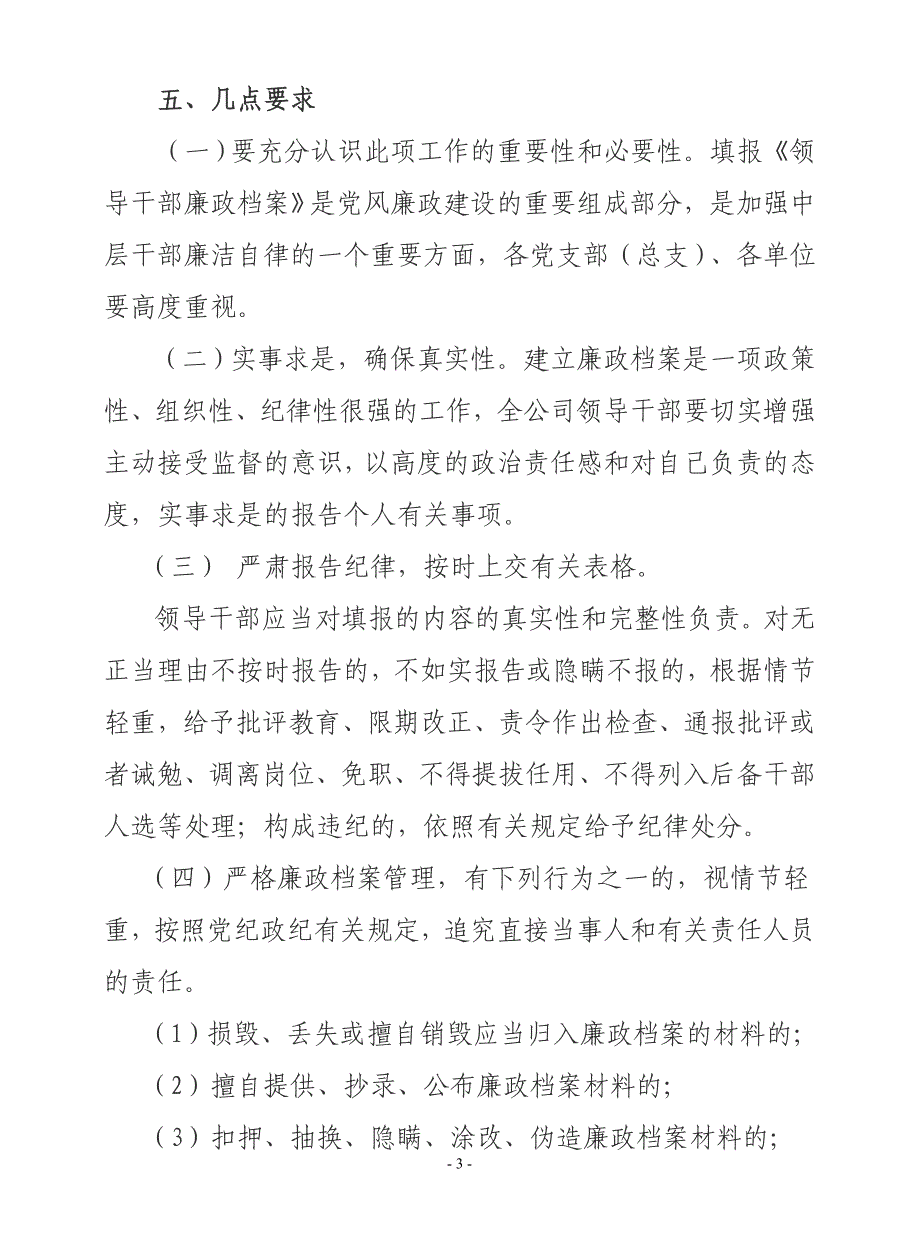 五、几点要求
（一）要充分认识此项工作的重要性和必要性。填报《领
导干部廉政档案》是党风廉政建设的重要组成部分，是加强中
层干部廉洁自律的一个重要方面，各党支部（总支）、各单位
要高度重视。
（二）实事求是，确保真实性。建立廉政档案是一项政策
性、组织性、纪律性很强的工作，全公司领导干部要切实增强
主动接受监督的意识，以高度的政治责任感和对自己负责的态
度，实事求是的报告个人有关事项。
（三） 严肃报告纪律，按时上交有关表格。
领导干部应当对填报的内容的真实性和完整性负责。对无
正当理由不按时报告的，不如实报告或隐瞒不报的，根据情节
轻重，给予批评教育、限期改正、责令作出检查、通报批评或
者诫勉、调离岗位、免职、不得提拔任用、不得列入后备干部
人选等处理；构成违纪的，依照有关规定给予纪律处分。
（四）严格廉政档案管理，有下列行为之一的，视情节轻
重，按照党纪政纪有关规定，追究直接当事人和有关责任人员
的责任。
（1）损毁、丢失或擅自销毁应当归入廉政档案的材料的；
（2）擅自提供、抄录、公布廉政档案材料的；
（3）扣押、抽换、隐瞒、涂改、伪造廉政档案材料的；
- 3 -